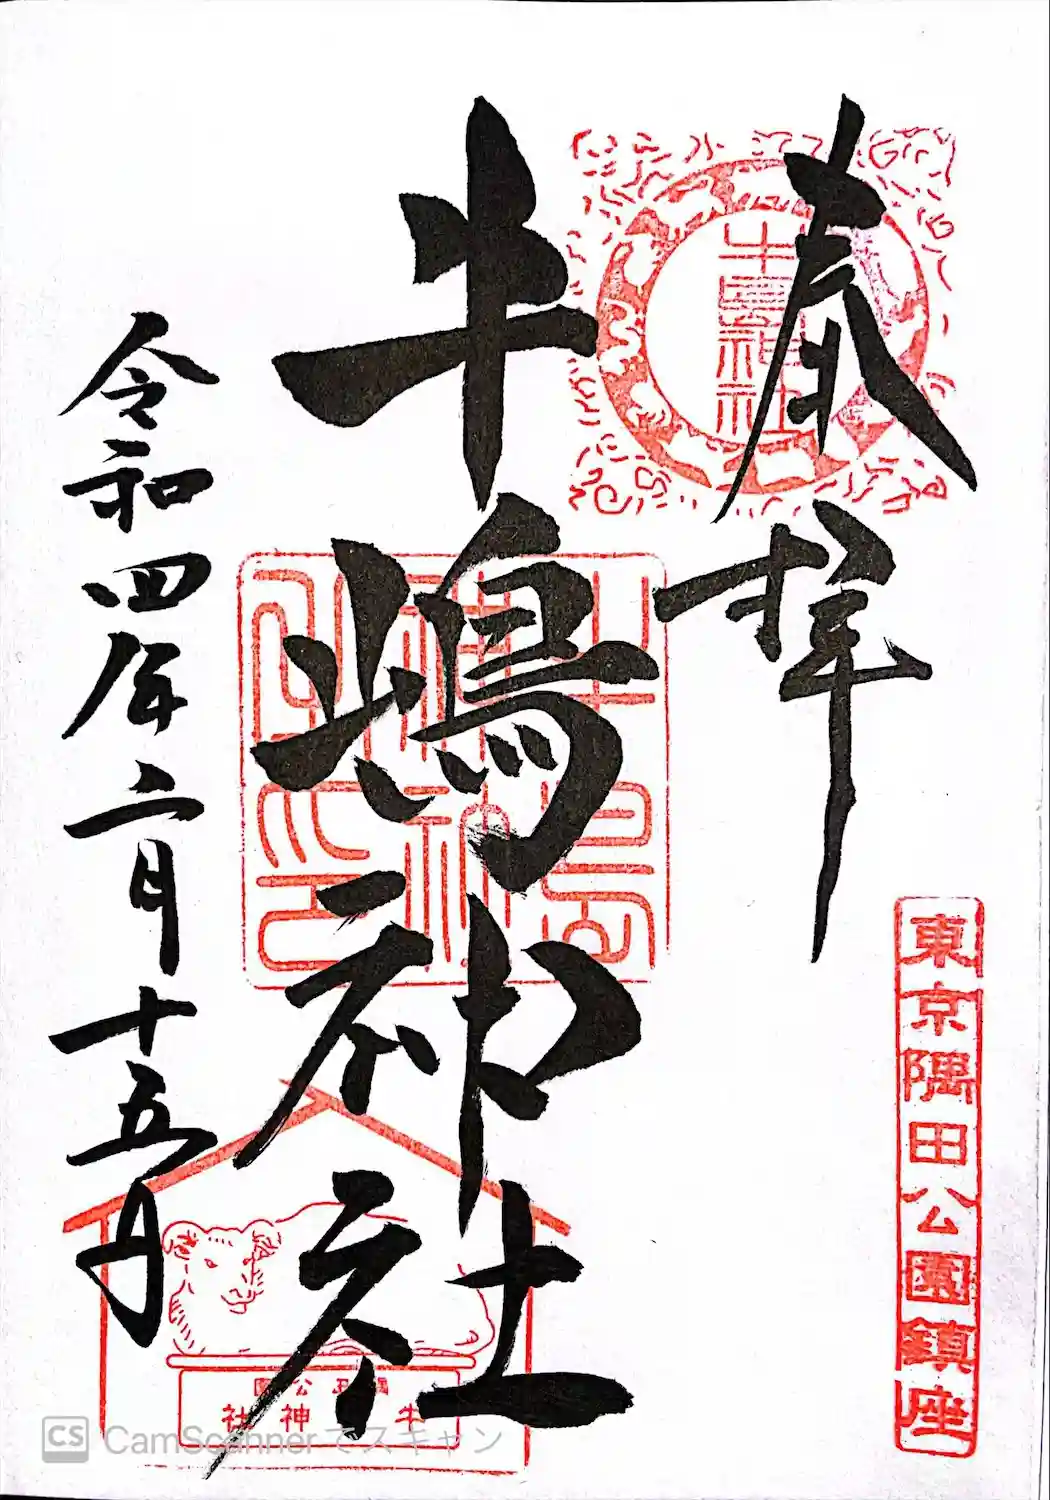 奉拝
牛嶋神社
令和四年二月十五日
牛嶋神社
東京隅田公園鎮座
牛神社
CS CamScannerでスキャン